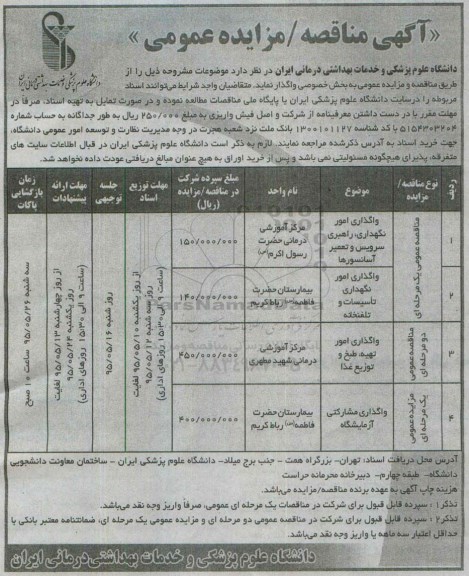 «آگهی مناقصه/مزایده عمومی»
دانشگاه علوم پزشکی و خدمات بهداشتی درمانی ایران
دانشگاه علوم پزشکی و خدمات بهداشتی درمانی ایران در نظر دارد موضوعات مشروحه ذیل را از
طریق مناقصه و مزایده عمومی به بخش خصوصی واگذار نماید. متقاضیان واجد شرایط می‌توانند اسناد
مربوطه را درسایت دانشگاه علوم پزشکی ایران یا پایگاه ملی مناقصات مطالعه نموده و در صورت تمایل به تهیه اسناد، صرفاً در
مهلت مقرر با در دست داشتن معرفینامه از شرکت و اصل فیش واریزی به مبلغ ۲۵۰/۰۰۰ ریال به طور جداگانه به حساب شماره
۵۱۵۴۳۰۳۲۰۴ با کد شناسه ۱۳۰۰۱۰۱۱۲۷ بانک ملت نزد شعبه هجرت در وجه مدیریت نظارت و توسعه امور عمومی دانشگاه،
جهت خرید اسناد به آدرس ذکرشده مراجعه نمایند. لازم به ذکر است دانشگاه علوم پزشکی ایران در قبال اطلاعات سایت های
متفرقه، پذیرای هیچگونه مسئولیتی نمی باشد و پس از خرید اوراق به هیچ عنوان مبالغ دریافتی عودت داده نخواهد شد.
ردیف
نوع مناقصه/مزایده
موضوع
نام واحد
مبلغ سپرده شرکت در مناقصه/مزایده (ریال)
مهلت توزیع اسناد
جلسه توجیهی
مهلت ارائه پیشنهادات
زمان بازگشایی پاکات
۱
مناقصه عمومی یک مرحله ای
واگذاری امور نگهداری، راهبری سرویس و تعمیر آسانسورها
مرکز آموزشی درمانی حضرت رسول اکرم(ص)
۱۵۰/۰۰۰/۰۰۰
۲
واگذاری امور نگهداری تأسیسات و تلفنخانه
بیمارستان حضرت فاطمه(س) رباط کریم
۱۴۰/۰۰۰/۰۰۰
۳
مناقصه عمومی دو مرحله ای
واگذاری امور تهیه، طبخ و توزیع غذا
مرکز آموزشی درمانی شهید مطهری
۴۵۰/۰۰۰/۰۰۰
۴
مزایده عمومی یک مرحله ای
واگذاری مشارکتی آزمایشگاه
بیمارستان حضرت فاطمه(س) رباط کریم
۴۰۰/۰۰۰/۰۰۰
از روز یکشنبه ۹۵/۰۵/۱۰ لغایت روز سه شنبه ۹۵/۰۵/۱۲ (ساعت ۹ الی ۱۵:۳۰ روزهای اداری)
روز شنبه ۹۵/۰۵/۱۶
از روز چهارشنبه ۹۵/۰۵/۱۳ لغایت روز یکشنبه ۹۵/۰۵/۲۴ (ساعت ۹ الی ۱۵:۳۰ روزهای اداری)
سه شنبه ۹۵/۰۵/۲۶ ساعت ۱۰ صبح
آدرس محل دریافت اسناد: تهران- بزرگراه همت - جنب برج میلاد- دانشگاه علوم پزشکی ایران - ساختمان معاونت دانشجویی
دانشگاه- طبقه چهارم- دبیرخانه محرمانه حراست
هزینه چاپ آگهی به عهده برنده مناقصه/مزایده می‌باشد.
تذکر۱: سپرده قابل قبول برای شرکت در مناقصات یک مرحله ای عمومی، صرفاً واریز وجه نقد می‌باشد.
تذکر۲: سپرده قابل قبول برای شرکت در مناقصه عمومی دو مرحله ای و مزایده عمومی یک مرحله ای، ضمانتنامه معتبر بانکی با
حداقل اعتبار سه ماهه یا واریز وجه نقد می‌باشد.
دانشگاه علوم پزشکی و خدمات بهداشتی درمانی ایران